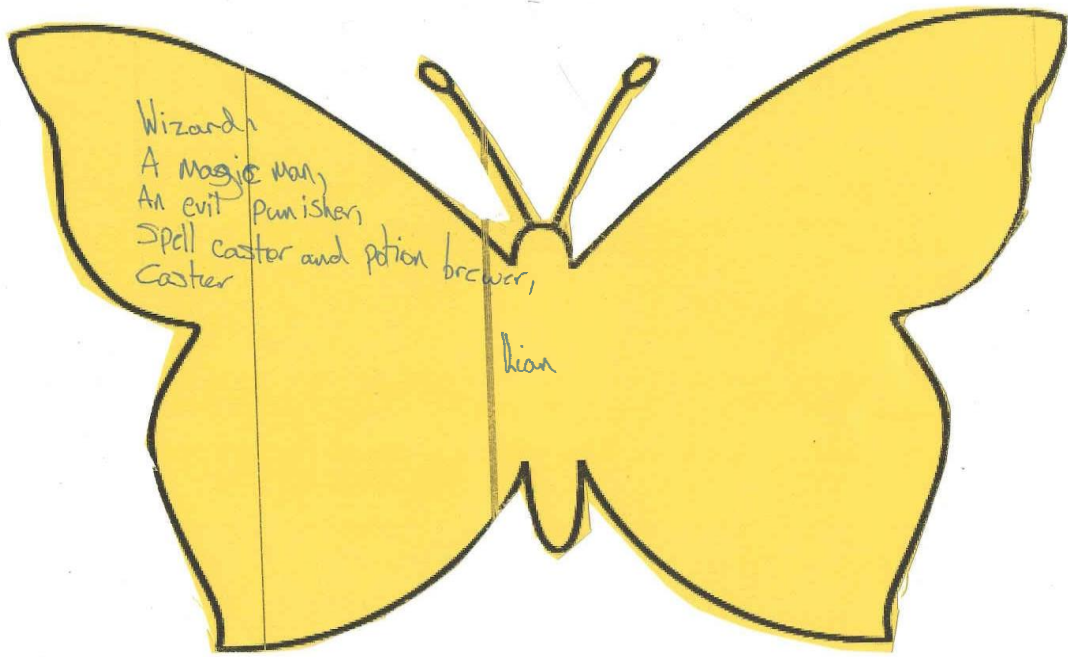 Wizard,
A magic man,
An evil punisher,
Spell castor and potion brewer,
Caster